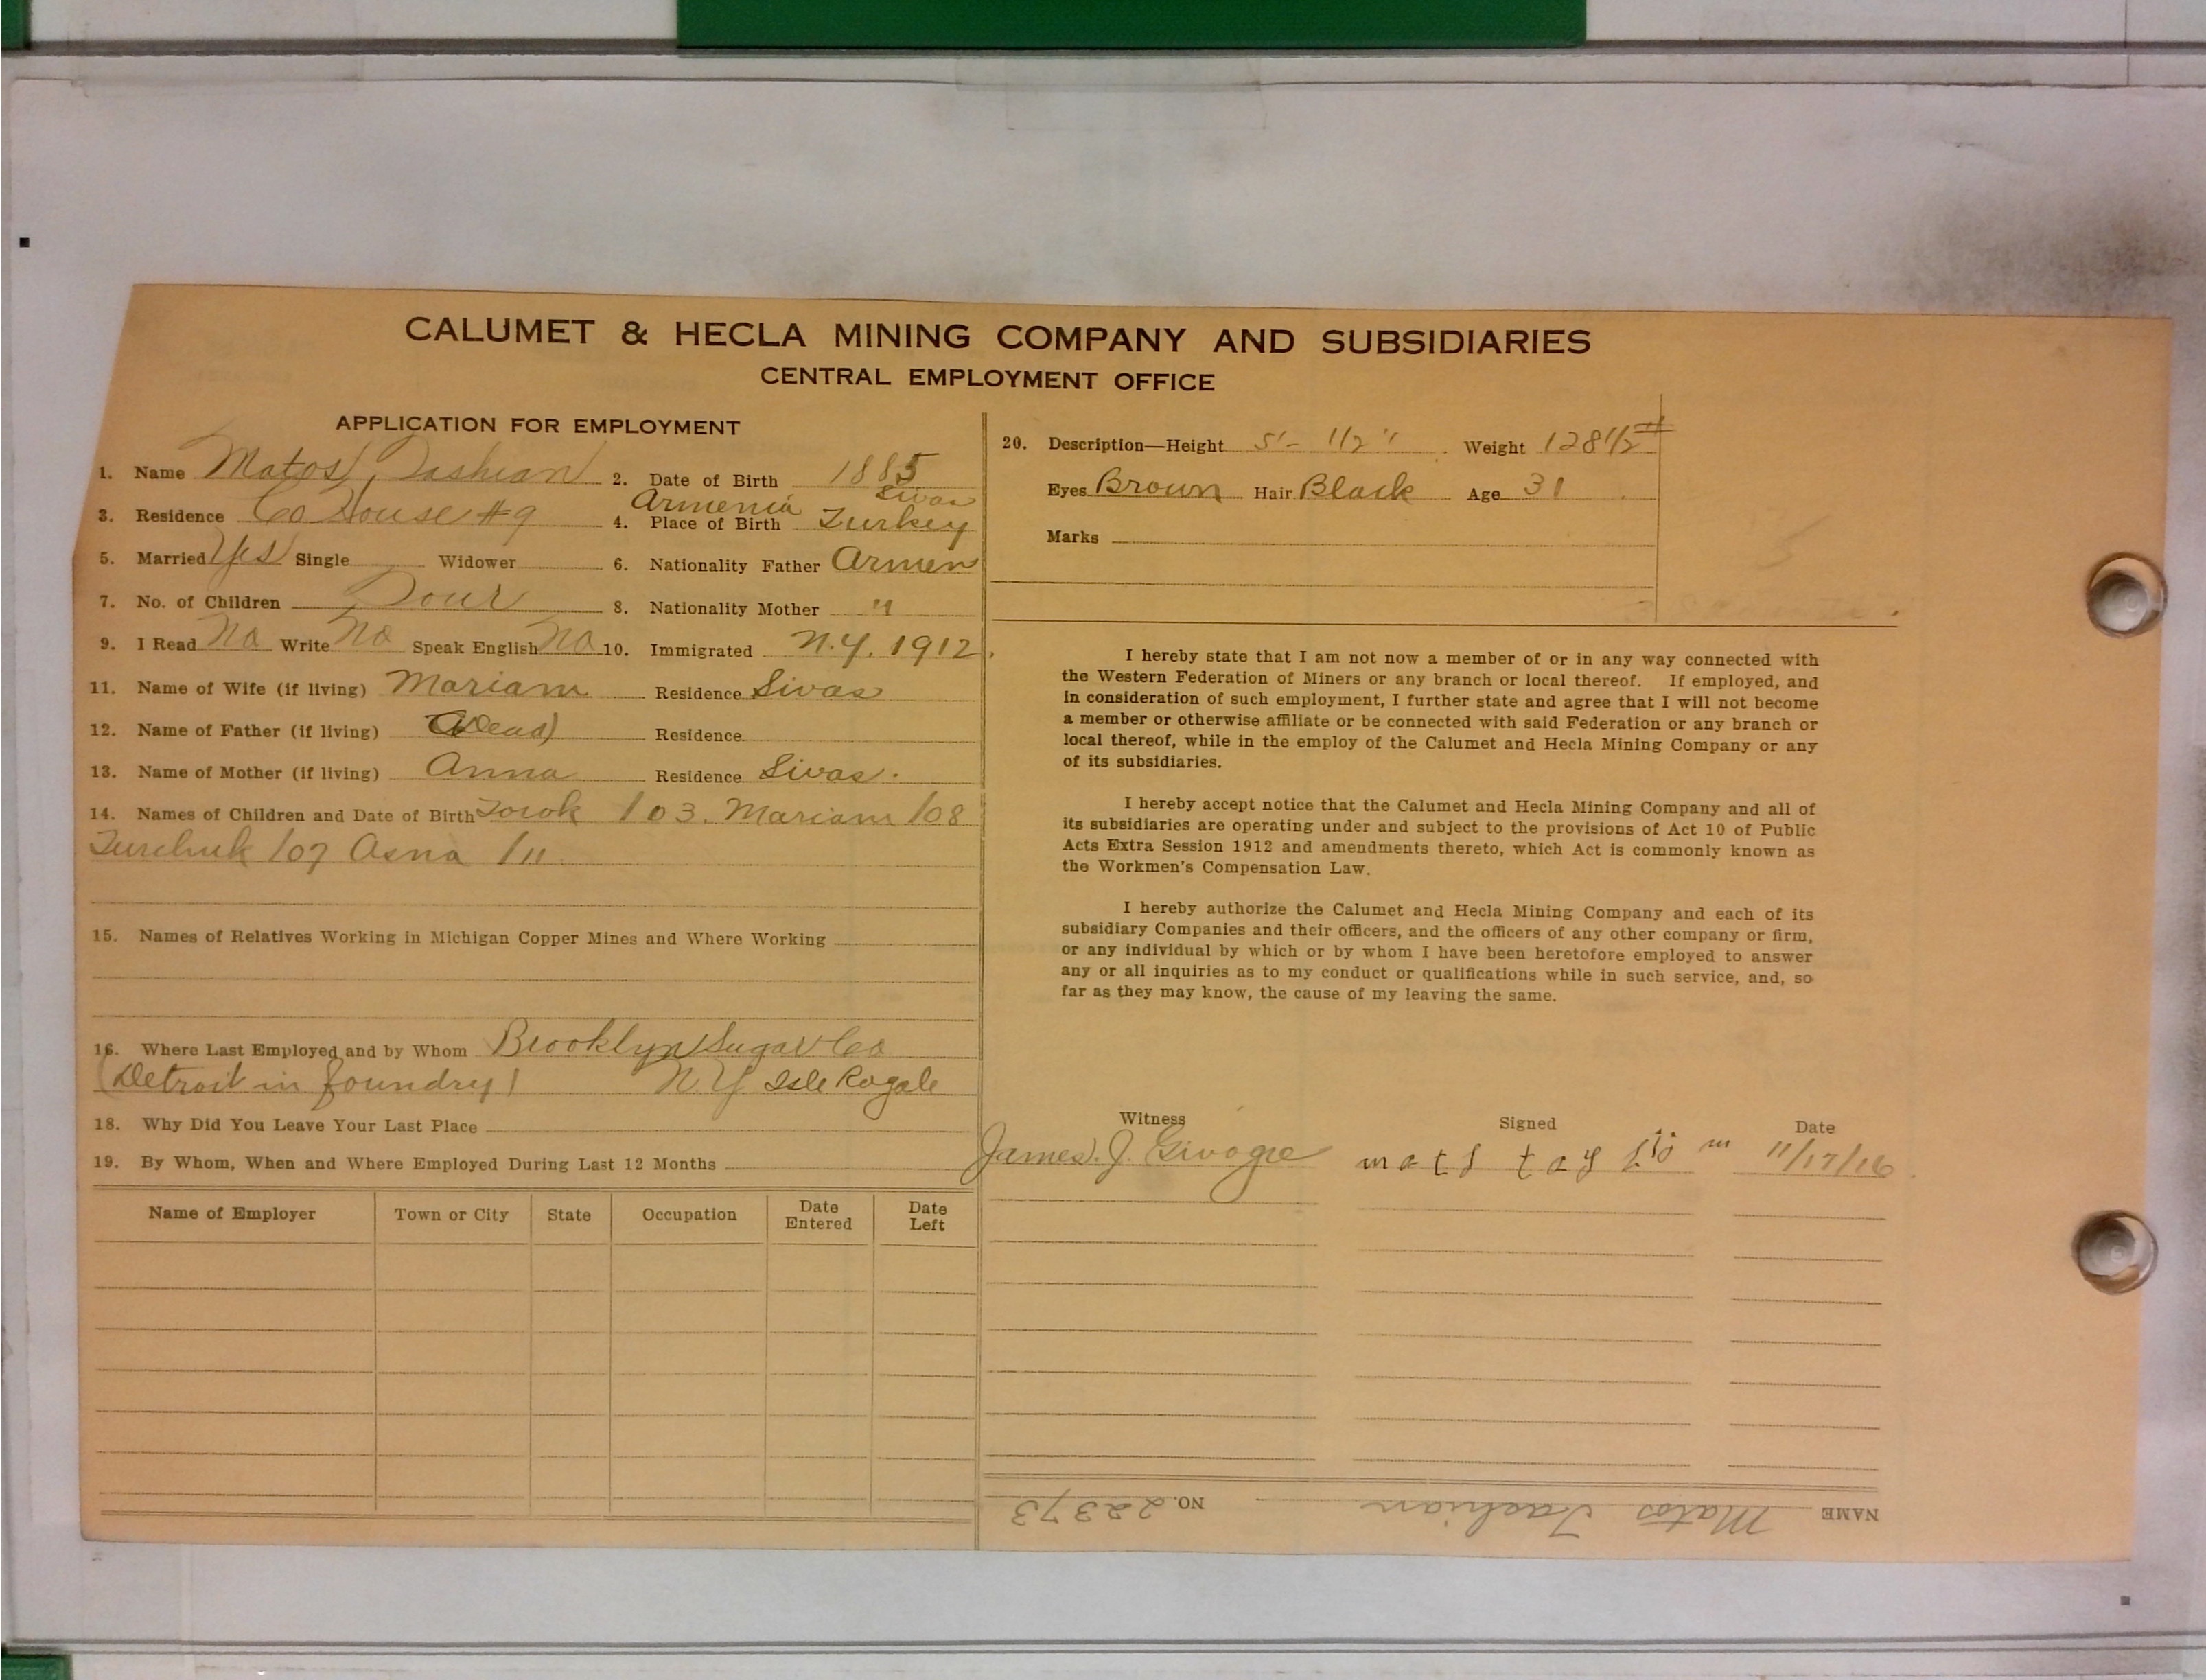 CALUMET & HECLA MINING COMPANY AND SUBSIDIARIES
CENTRAL EMPLOYMENT OFFICE
APPLICATION FOR EMPLOYMENT
1. Name Matos Tashian 2. Date of Birth 1885
3. Residence Co House #9 4. Place of Birth Armenia Sivas Turkey
5. Married Yes Single Widower 6. Nationality Father Armen
7. No. of Children Four 8. Nationality Mother "
9. I Read No Write No Speak English No 10. Immigrated N.Y. 1912.
11. Name of Wife (if living) Mariam Residence Sivas
12. Name of Father (if living) (Dead) Residence
13. Name of Mother (if living) Anna Residence Sivas.
14. Names of Children and Date of Birth Torok /03. Mariam /08
/07 Asna /11
15. Names of Relatives Working in Michigan Copper Mines and Where Working
16. Where Last Employed and by Whom Brooklyn Sugar Co
(Detroit in foundry) N.Y Isle Rogale
18. Why Did You Leave Your Last Place
19. By Whom, When and Where Employed During Last 12 Months
Name of Employer Town or City State Occupation Date Entered Date Left
20. Description—Height 5'- 1/2" Weight 128 1/2 #
Eyes Brown Hair Black Age 31
Marks
I hereby state that I am not now a member of or in any way connected with
the Western Federation of Miners or any branch or local thereof. If employed, and
in consideration of such employment, I further state and agree that I will not become
a member or otherwise affiliate or be connected with said Federation or any branch or
local thereof, while in the employ of the Calumet and Hecla Mining Company or any
of its subsidiaries.
I hereby accept notice that the Calumet and Hecla Mining Company and all of
its subsidiaries are operating under and subject to the provisions of Act 10 of Public
Acts Extra Session 1912 and amendments thereto, which Act is commonly known as
the Workmen's Compensation Law.
I hereby authorize the Calumet and Hecla Mining Company and each of its
subsidiary Companies and their officers, and the officers of any other company or firm,
or any individual by which or by whom I have been heretofore employed to answer
any or all inquiries as to my conduct or qualifications while in such service, and, so
far as they may know, the cause of my leaving the same.
Witness Signed Date
James. J. 11/17/16
NAME Matos Tashian NO. 22373